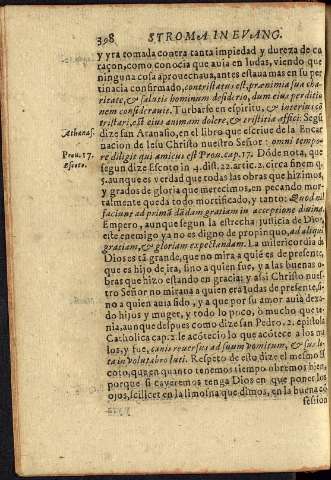 398 STROMA IN EVANG.
y yra tomada contra tanta impiedad y dureza de ca
raçon, como conocia que auia en Iudas, viendo que
ninguna cosa aprouechaua, antes estaua mas en su per
tinacia confirmado, contristatus est, præ nimia sua cha
ritate, & salutis hominum desiderio, dum eius perditio
nem considerauit. Turbarse en espiritu, & interius cõ
tristari, est eius animam dolere, & tristitia affici: Segũ
Athanas. dize san Atanasio, en el libro que escriue de la Encar
nacion de Iesu Christo nuestro Señor: omni tempo-
Prou. 17. re diligit qui amicus est Prou. cap. 17. Dõde nota, que
Escoto. segun dize Escoto in 4. dist. 22. artic. 2. circa finem q.
5. aunque es verdad que todas las obras que hizimos,
y grados de gloria que merecimos, en pecando mor-
talmente queda todo mortificado, y tanto: Quod nil
faciunt ad primã dãdam gratiam in acceptione diuina.
Empero, aunque segun la estrecha justicia de Dios,
este enemigo ya no es digno de propinquo, ad aliquã
gratiam, & gloriam expectandam. La misericordia de
Dios es tã grande, que no mira a quiẽ es de presente,
que es hijo de ira, sino a quien fue, y a las buenas o-
bras que hizo estando en gracia: y assi Christo nues-
tro Señor no miraua a quien era Iudas de presente, si-
no a quien auia sido, y a que por su amor auia dexa-
do hijos y muger, y todo lo poco, ò mucho que te-
nia, aunque despues como dize san Pedro. 2. epistola
Catholica cap. 2. le acõtecio lo que acõtece a los ma
los, y fue, canis reuersus ad suum vomitum, & sus lo-
ta in volutabro luti. Respeto de esto dize el mesmo Es
coto, que en quanto tenemos tiempo obremos bien,
porque si cayeremos tenga Dios en que poner los
ojos, scilicet en la limosna que dimos, en la buena cõ
fession